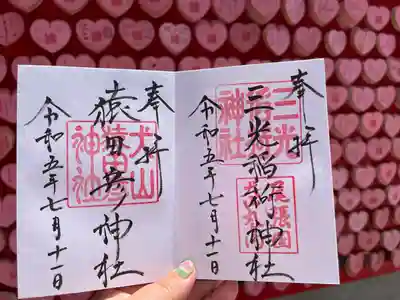 奉拝
三光稲荷神社
令和五年七月十一日
三光
神社
尾張国
犬山
奉拝
猿田彦神社
令和五年七月十一日
犬山
猿田彦
神社